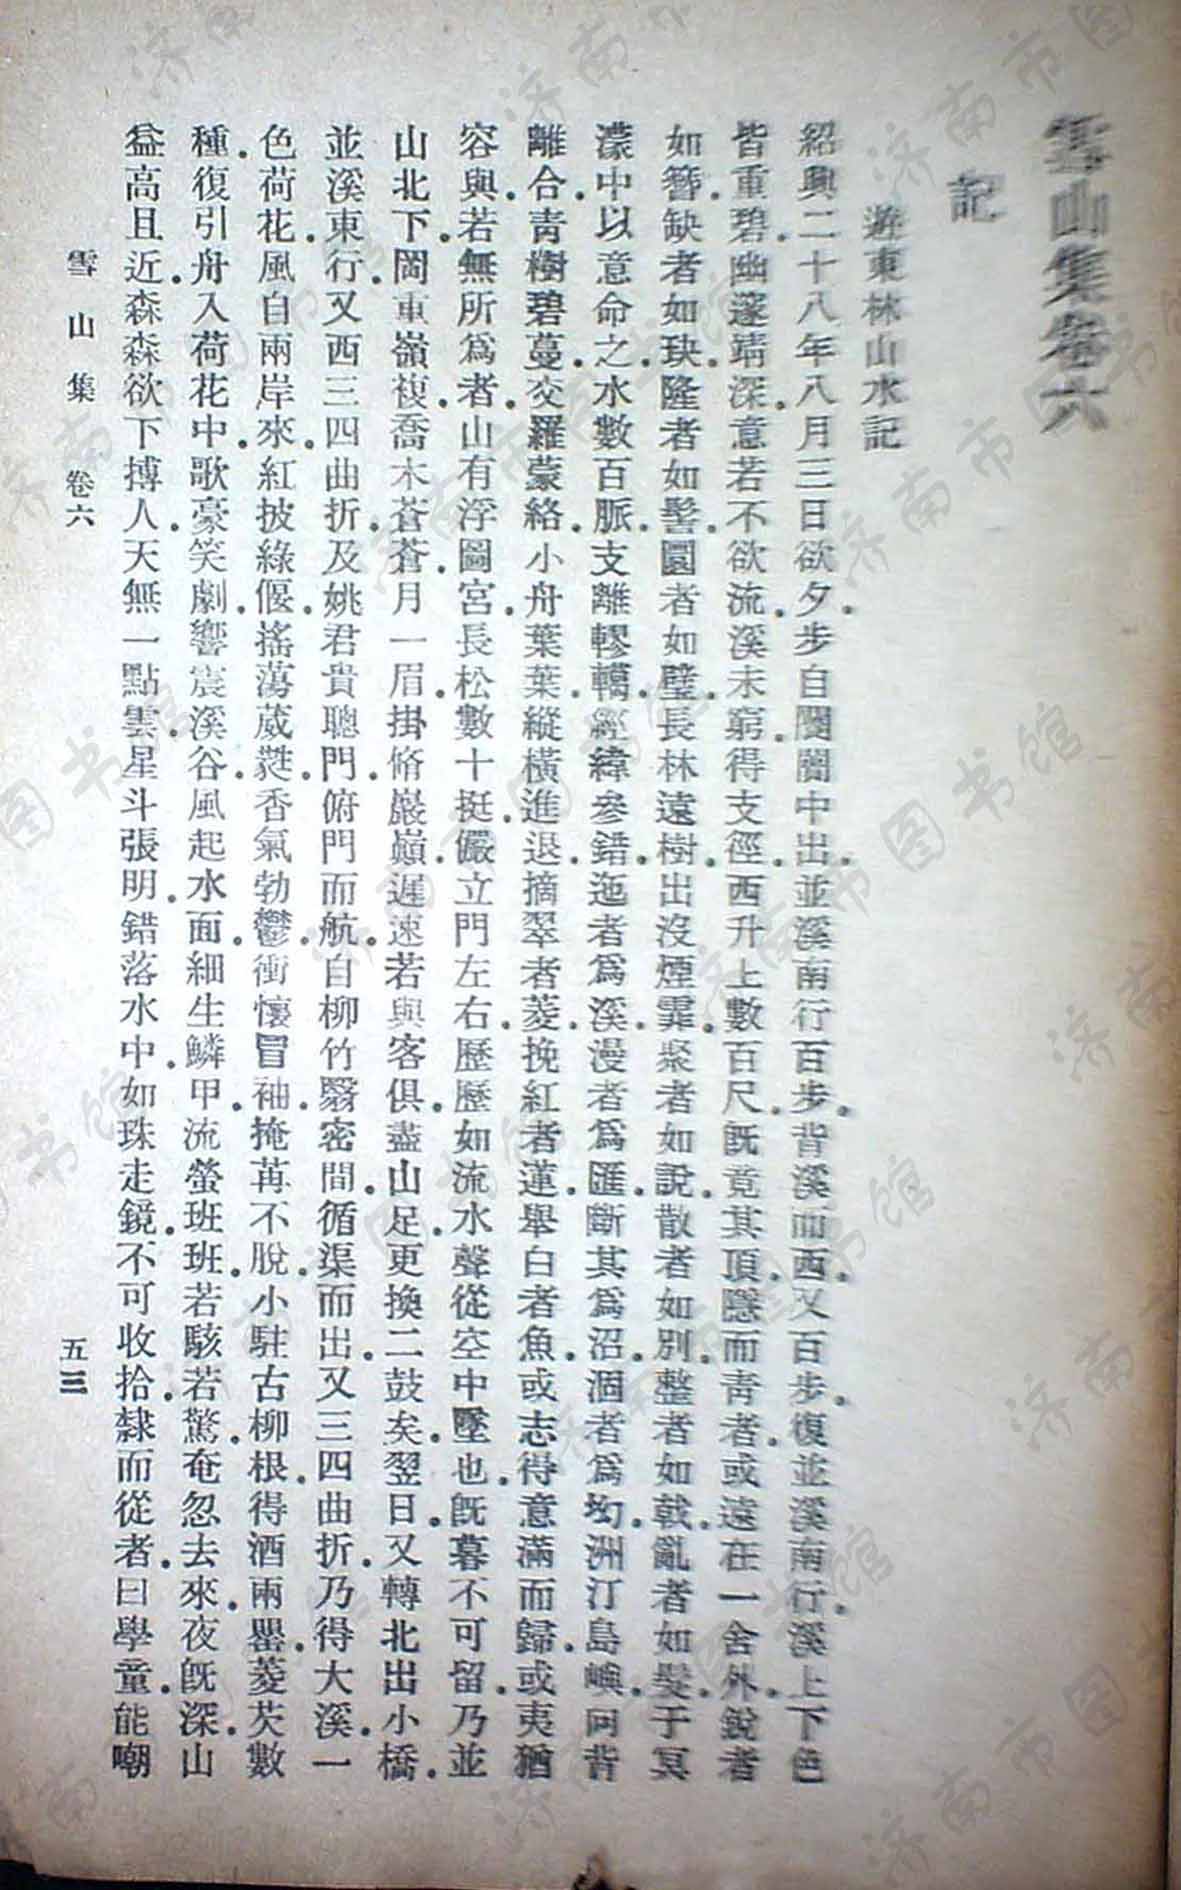 雪山集卷六
記
遊東林山水記
紹興二十八年八月三日欲夕。步自闤闠中出。並溪南行百步。背溪而西。又百步。復並溪南行。溪上下色
皆重碧。幽邃靖深。意若不欲流。溪未窮。得支徑。西升上數百尺。既竟其頂。隱而青者。或遠在一舍外。銳者
如簪。缺者如玦。隆者如髻。圜者如璧。長林遠樹。出沒煙霏。聚者如說。散者如別。整者如戟。亂者如髮。于冥
濛中以意命之。水數百脈。支離轇轕。經緯參錯。迤者爲溪。漫者爲匯。斷其爲沼。涸者爲坳。洲汀島嶼。向背
離合。青樹碧蔓。交羅蒙絡。小舟葉葉。縱橫進退。摘翠者菱。挽紅者蓮。舉白者魚。或志得意滿而歸。或夷猶
容與。若無所爲者。山有浮圖宮。長松數十挺。儼立門左右。歷歷如流水聲從空中墜也。既暮不可留。乃並
山北下。岡重嶺複。喬木蒼蒼。月一眉。掛脩巖巔。遲速若與客俱。盡山足。更換二鼓矣。翌日。又轉北出小橋。
並溪東行。又西三四曲折。及姚君貴聰門。俯門而航。自柳竹翳密間。循渠而出。又三四曲折。乃得大溪。一
色荷花。風自兩岸來。紅披綠偃。搖蕩葳蕤。香氣勃鬱。衝懷冒袖。掩苒不脫。小駐古柳根。得酒兩罌。菱芡數
種。復引舟入荷花中。歌豪笑劇。響震溪谷。風起水面。細生鱗甲。流螢班班。若駭若驚。奄忽去來。夜既深。山
益高且近。森森欲下搏人。天無一點雲。星斗張明。錯落水中。如珠走鏡。不可收拾。隸而從者。曰學童。能嘲
雪山集 卷六 五三
济南市图书馆